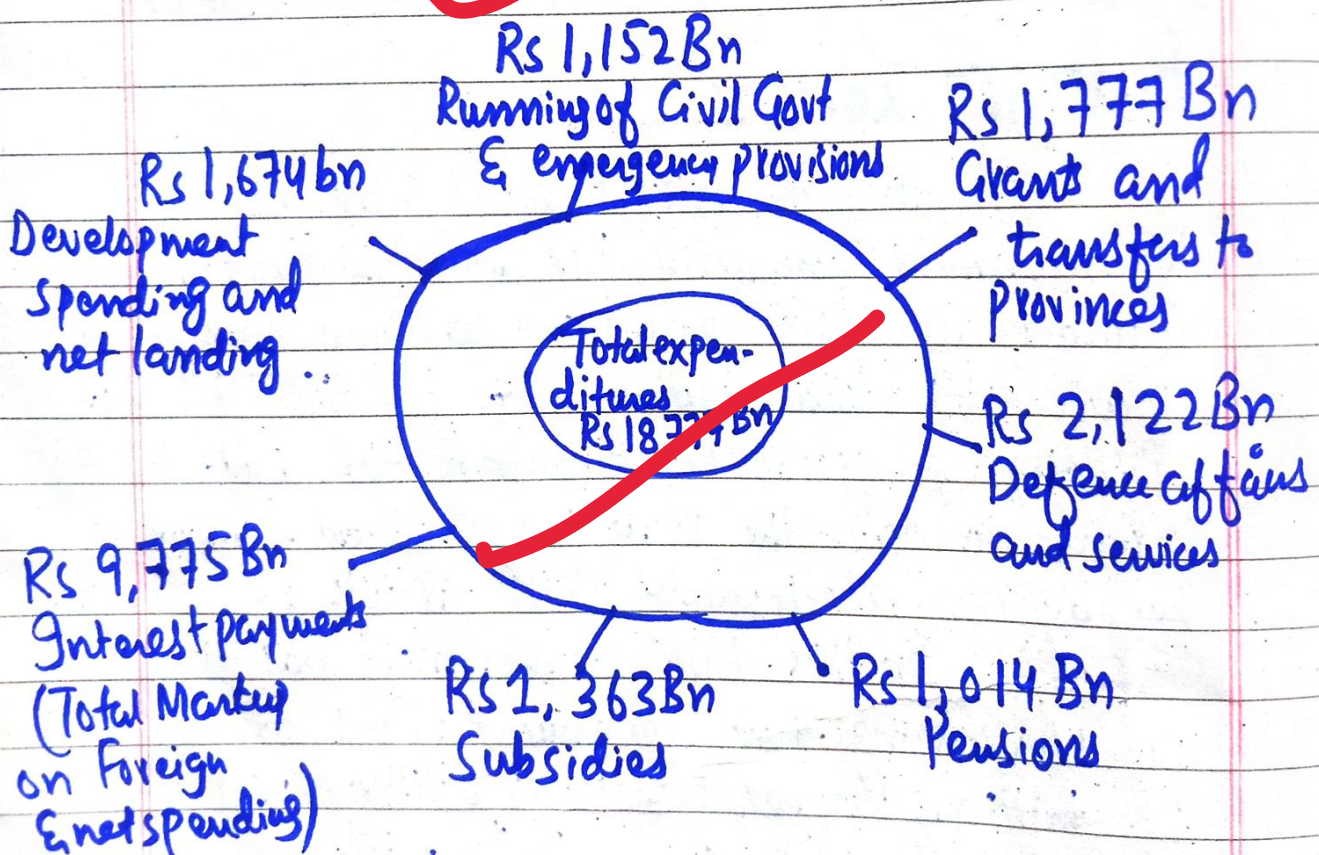 Rs 1,152 Bn
Running of Civil Govt
& emergency provisions
Rs 1,777 Bn
Grants and
transfers to
provinces
Rs 1,674 bn
Development
spending and
net landing.
Total expen-
ditures
Rs 18 777 Bn
Rs 2,122 Bn
Defence affairs
and services
Rs 9,775 Bn
Interest payments
(Total Markup
on Foreign
& net spending)
Rs 1, 363 Bn
Subsidies
Rs 1,014 Bn
Pensions